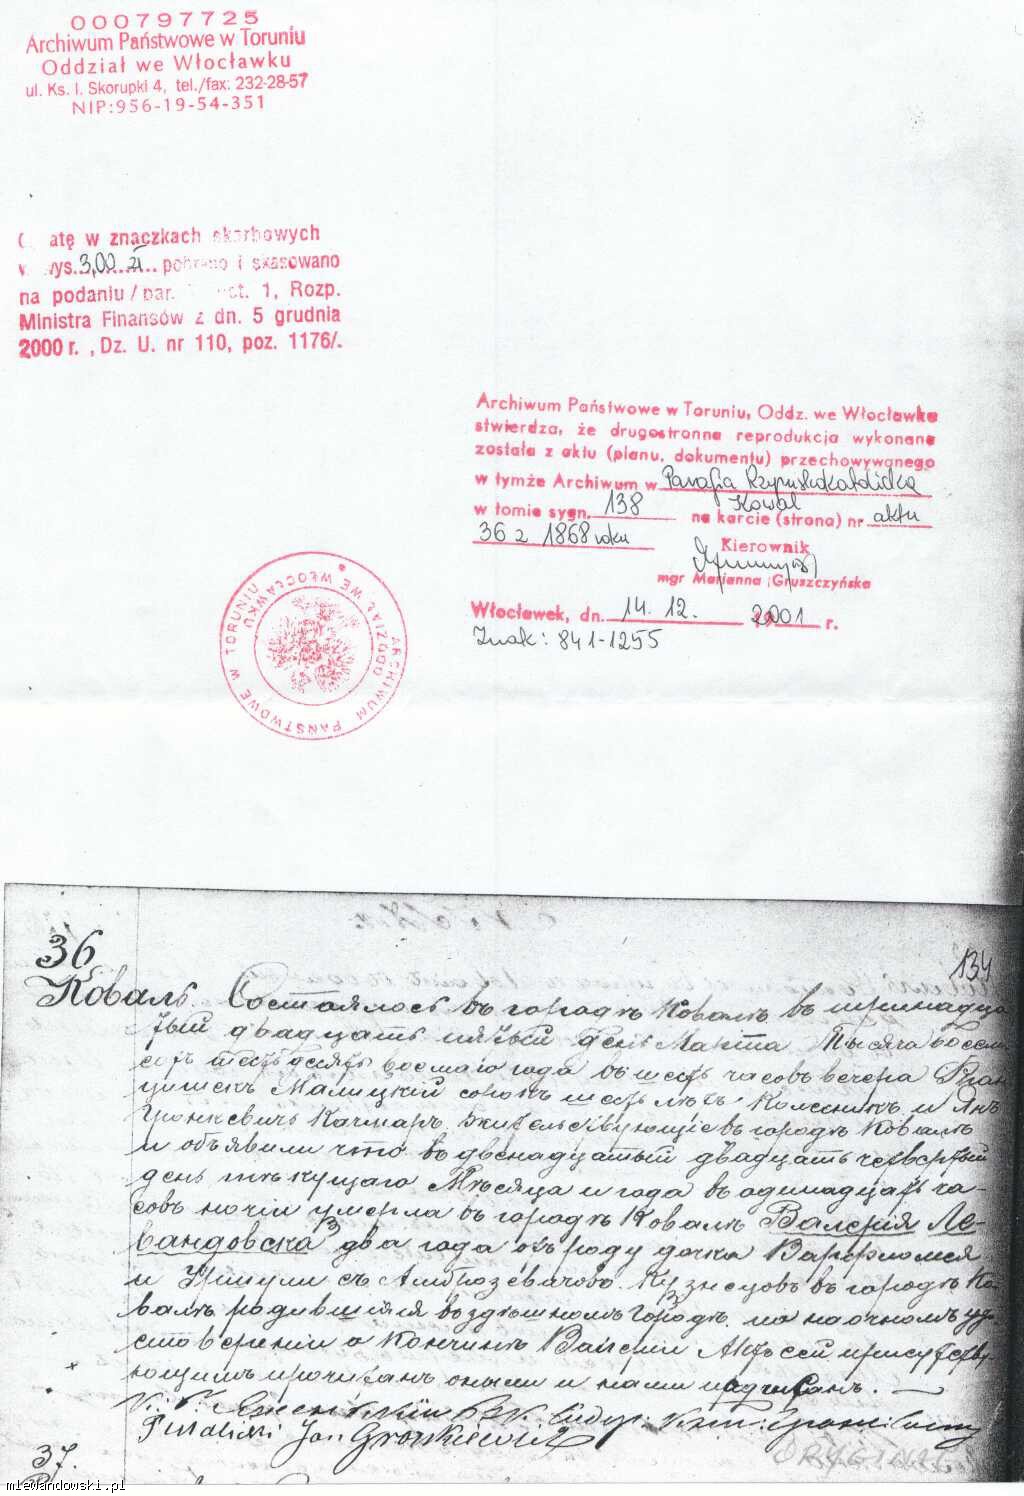 000797725
Archiwum Państwowe w Toruniu
Oddział we Włocławku
ul. Ks. I. Skorupki 4, tel./fax: 232-28-57
NIP:956-19-54-351
w znaczkach skarbowych
3,00 zł pobrano i skasowano
na podaniu /par. 1, Rozp.
Ministra Finansów z dn. 5 grudnia
2000 r. , Dz. U. nr 110, poz. 1176/.
Archiwum Państwowe w Toruniu, Oddz. we Włocławku
stwierdza, że drugostronna reprodukcja wykonana
została z aktu (planu, dokumentu) przechowywanego
w tymże Archiwum w Parafia Rzymskokatolicka
Kowal
w tomie sygn. 138 na karcie (strona) nr aktu
36 z 1868 roku
Kierownik
mgr Marianna Gruszczyńska
Włocławek, dn. 14. 12. 2001 r.
Znak: 841-1255
ARCHIWUM PAŃSTWOWE W TORUNIU ODDZIAŁ WE WŁOCŁAWKU
36
134
Коваль. Состоялось въ городѣ Ковалѣ въ тринадца
тый двадцать пятый день Марта тысяча восем
сотъ шестьдесятъ восмаго года въ шесть часовъ вечера Фран
цишекъ Малицкий сорокъ шесть лѣтъ Колесникъ и Янъ
Гронкевичъ жительствующіе въ городѣ Ковалѣ
и объявили что въ двенадцатый двадцать четвертый
день текущаго Мѣсяца и года въ одинадцать ча-
совъ ночи умерла въ городѣ Ковалѣ Валерия Ле-
вандовска два года отъ роду дочка Варфломея
и Уршули съ Кузнецовъ въ городѣ Ко
валѣ родившаяся въ здѣшномъ городѣ. по наочномъ удо
стоверении о кончинѣ Валерии Актъ сей присутству
ющимъ прочитанъ оными и нами подписанъ.
Malicki Jan Gronkiewicz
37.
ORYGINAŁ
mlewandowski.pl